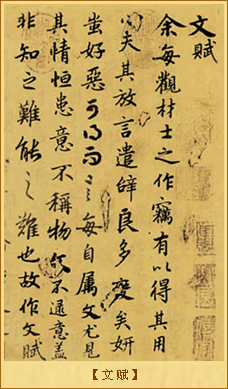 文賦
余每觀材士之作竊有以得其用
心夫其放言遣辭良多變矣妍
蚩好惡可得而言每自属文尤見
其情恒患意不稱物文不逮意盖
非知之難能之難也故作文賦
【文赋】